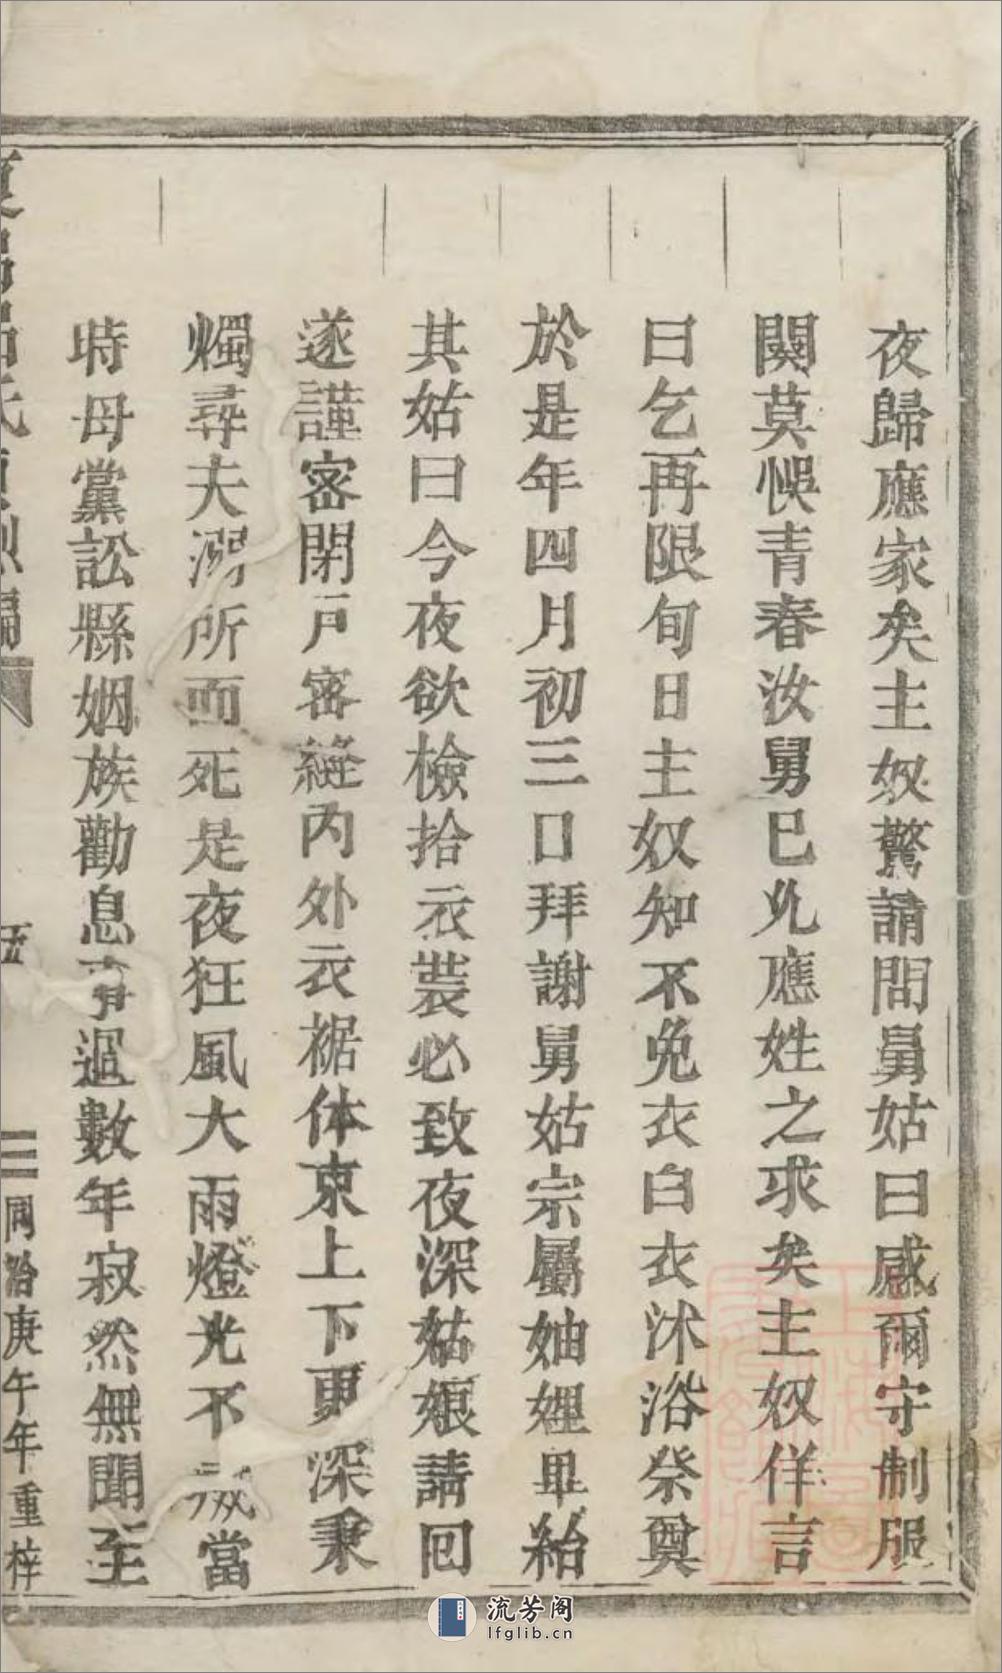 夜歸應家矣主奴驚請問舅姑曰感爾守制服
闋莫悞青春汝舅已允應姓之求矣主奴佯言
曰乞再限旬日主奴知不免衣白衣沐浴祭奠
於是年四月初三口拜謝舅姑宗屬妯娌畢紿
其姑曰今夜欲檢拾衣裝必致夜深姑娘請回
遂謹密閉戸密縫內外衣裾体束上下更深秉
燭尋夫溺所而死是夜狂風大雨燈光不滅當
時母黨訟縣姻族勸息事過數年寂然無聞至
氏貞烈編
五
同治庚午年重梓
流芳阁
lfglib.cn